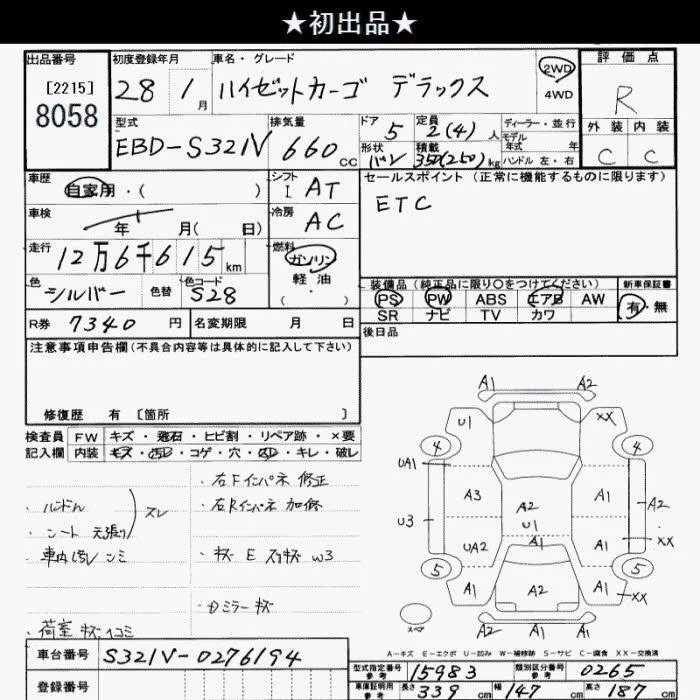 ★初出品★
出品番号
[2215]
8058
初度登録年月
28 1月
車名・グレード
ハイゼットカーゴ デラックス
2WD
4WD
評価点
R
型式
EBD-S321V
排気量
660cc
ドア
5
定員
2(4)人
形状
バン
積載
350(250)kg
ディーラー・並行
モデル年式 年
ハンドル 左・右
外装 内装
C C
車歴
自家用・( )
シフト
I AT
セールスポイント (正常に機能するものに限ります)
ETC
車検
年 月( 日)
冷房
AC
走行
12万6千615km
燃料
ガソリン
軽油
・( )
色
シルバー
色替
色コード
S28
装備品(純正品に限り○をつけてください)
新車保証書
PS PW ABS エアB AW
SR ナビ TV カワ
有・無
R券 7340円
名変期限 月 日
後日品
注意事項申告欄(不具合内容等は具体的に記入して下さい)
修復歴 有 [箇所 ]
検査員記入欄
FW キズ・飛石・ヒビ割・リペア跡・×要
内装 キズ・汚レ・コゲ・穴・スレ・キレ・破レ
・ハンドル
・シート
スレ
・車内汚レ シミ
・荷室 キズ 凹コミ
・右Fインパネ 修正
・右Rインパネ 加修
・キズ E スリキズ W3
・Dミラー キズ
A1 A2
U1 XX
4 4
UA1
A3 A1
A2
U1
A1
A2
U3
XX
UA2 A1
5 5
A1 A2 A1
XX
A2 A1 A1
スペア
A-キズ E-エクボ U-凹み W-補修跡 S-サビ C-腐食 XX-交換済
車台番号 S321V-0276194
登録番号
型式指定番号 参考 15983
類別区分番号 参考 0265
車庫証明用 参考 長さ 339cm 幅 147cm 高さ 187cm